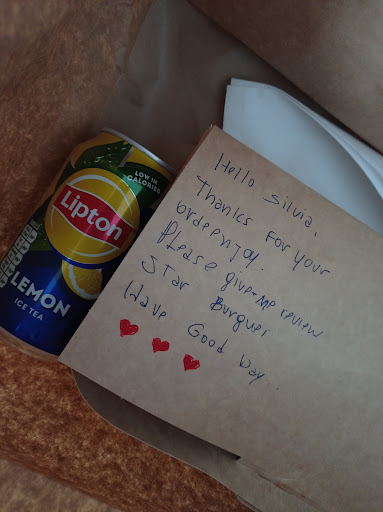 LOW IN
CALORIES
Lipton
LEMON
ICE TEA
Hello Silvia,
Thanks For your
ordeenjoy.
Please give me review
Star Burguer
Have Good Day.